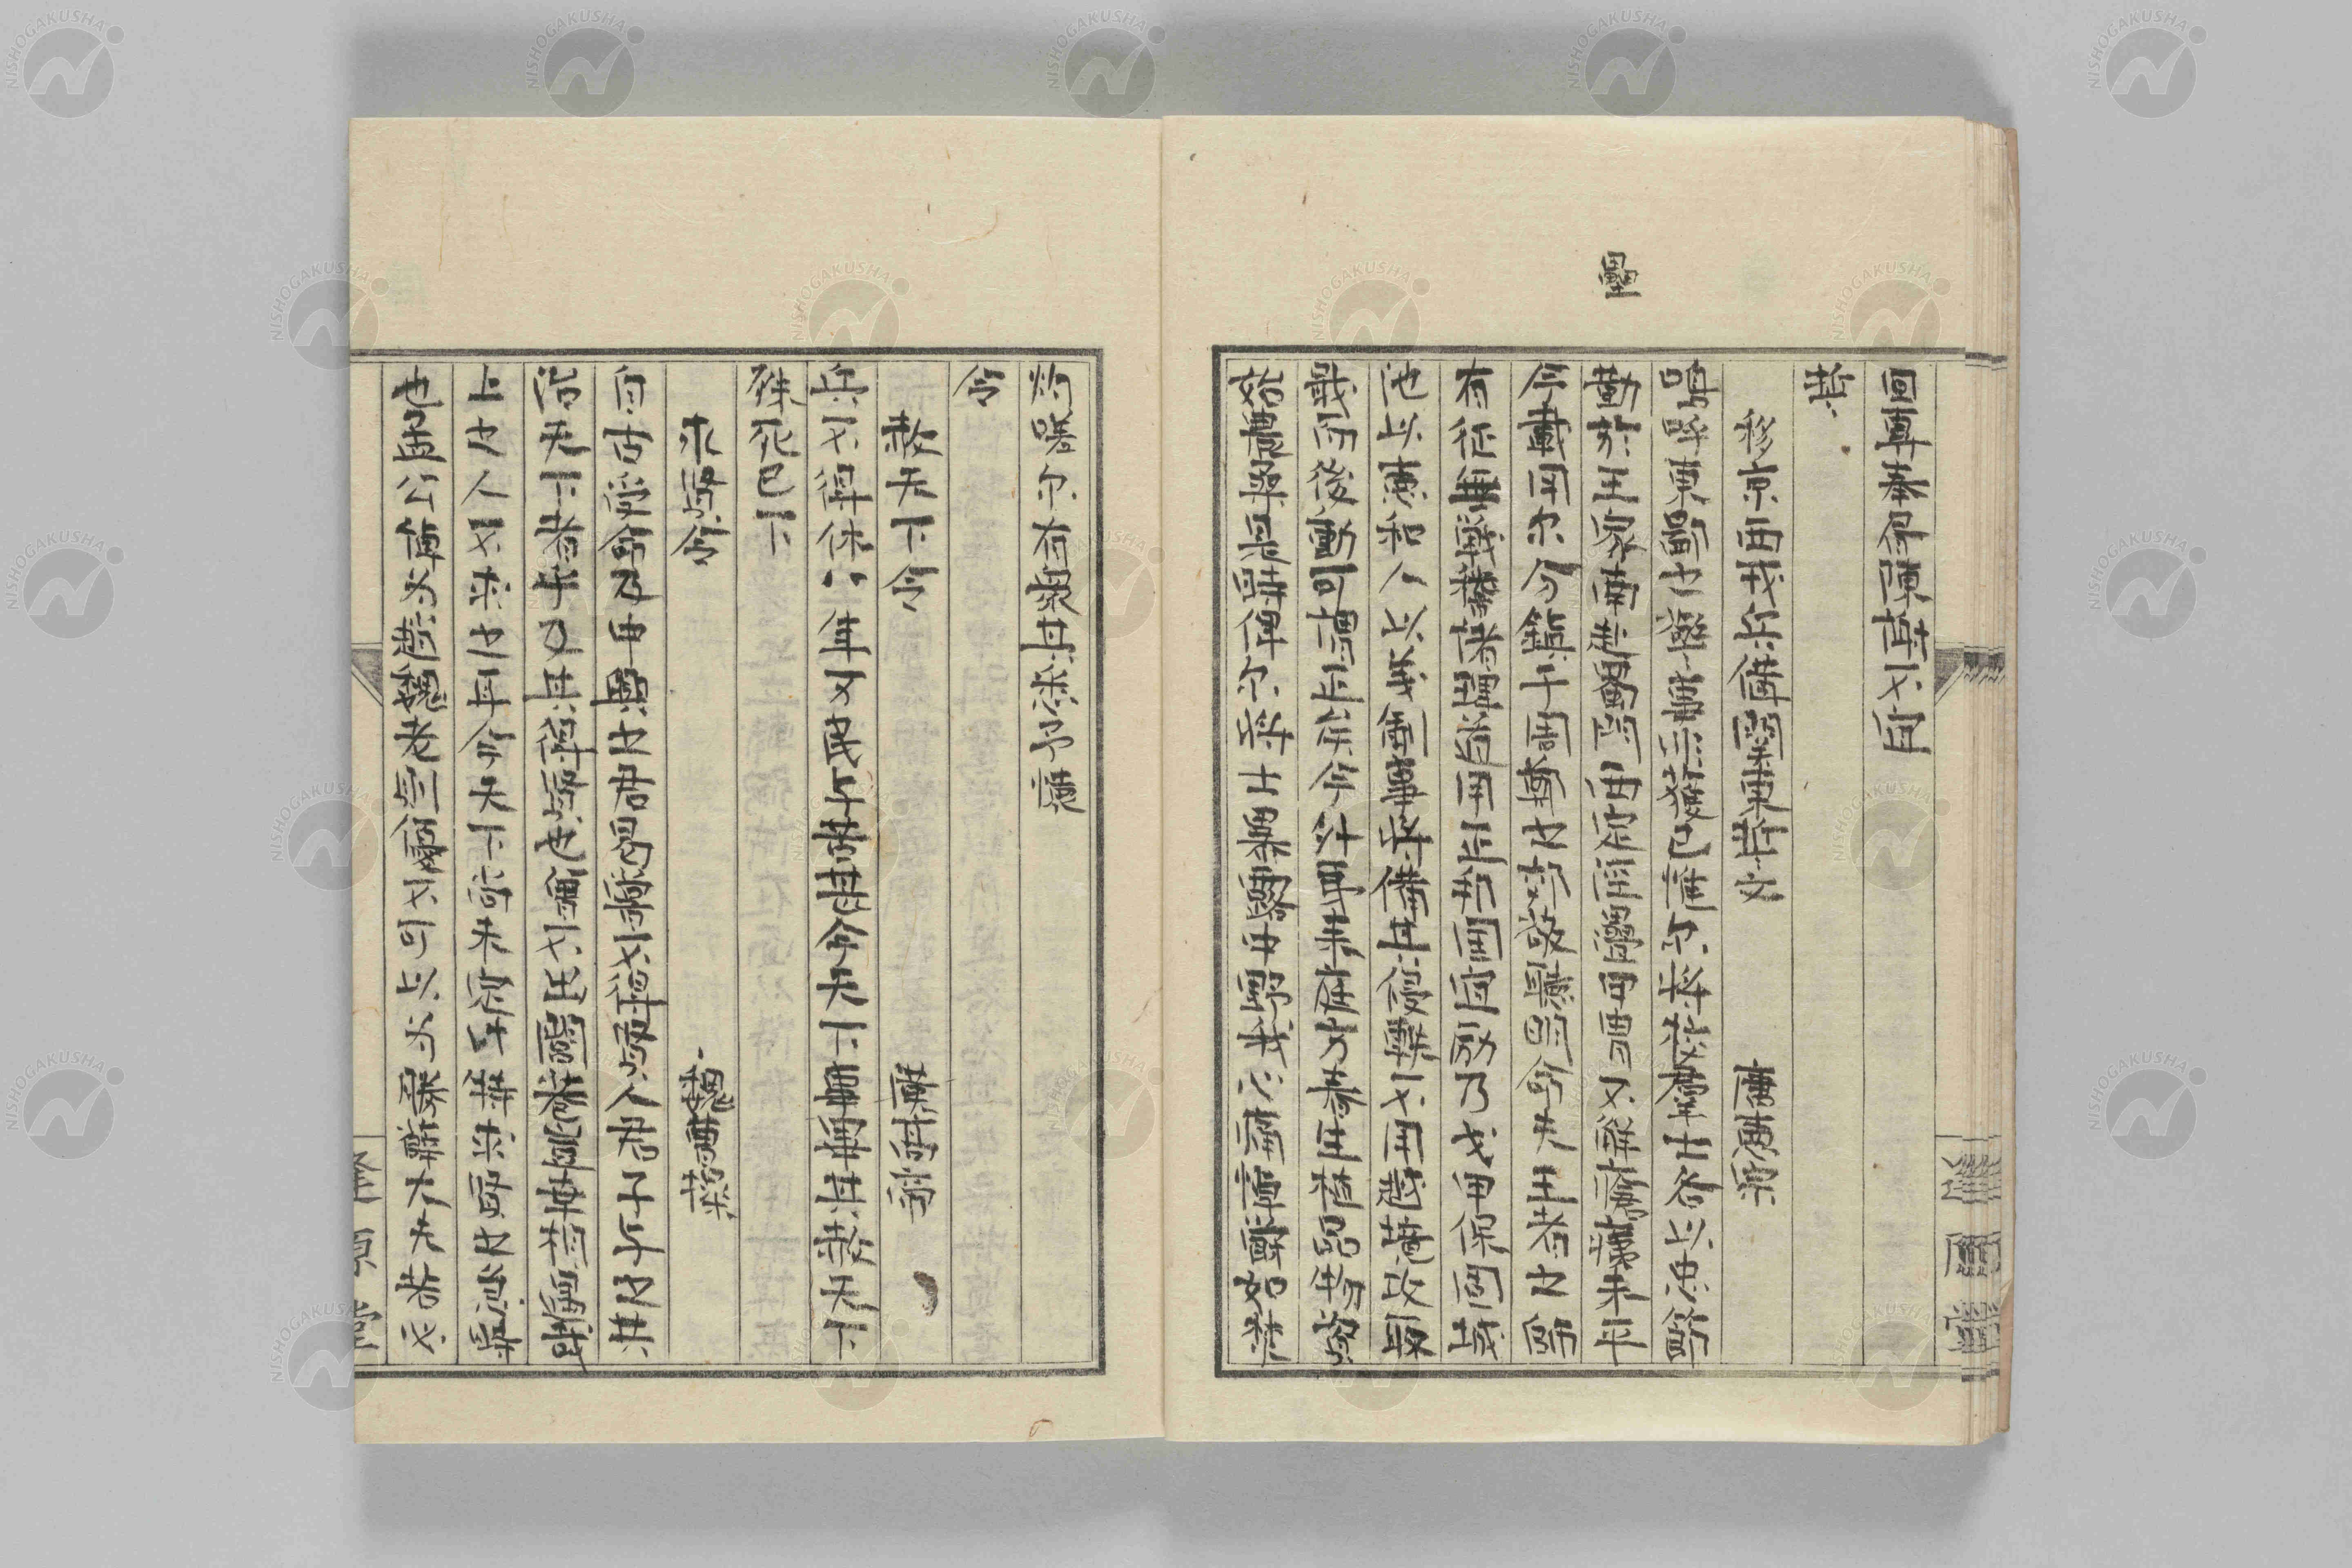 壘
移京西戎兵備關東詔文　唐德宗
嗚呼東鄙之警事非獲已諸尔將校羣士各以忠節
勤於王家南赴蜀門西定涇壘甲冑不解瘡痍未平
今載用尔分鎮于周鄭之郊敬聽明命夫王者之師
有征無戰稽諸理道用正邦國宜励乃戈甲保固城
池以德和人以義制事將備其侵軼不用越境攻取
戰而後動可謂正矣今外夷來庭方春生植品物資
始農桑是時俾尔將士暴露中野我心痛悼鬱如焚
灼嗟尔有衆其悉予懷
令
赦天下令　漢高帝
兵不得休八年万民与苦甚今天下事畢其赦天下
殊死已下
求賢令　魏曹操
自古受命及中興之君曷嘗不得賢人君子与之共
治天下者乎及其得賢也曾不出閭巷豈幸相遇哉
上之人不求之耳今天下尚未定此特求賢之急時
也孟公綽為趙魏老則優不可以為滕薛大夫若必